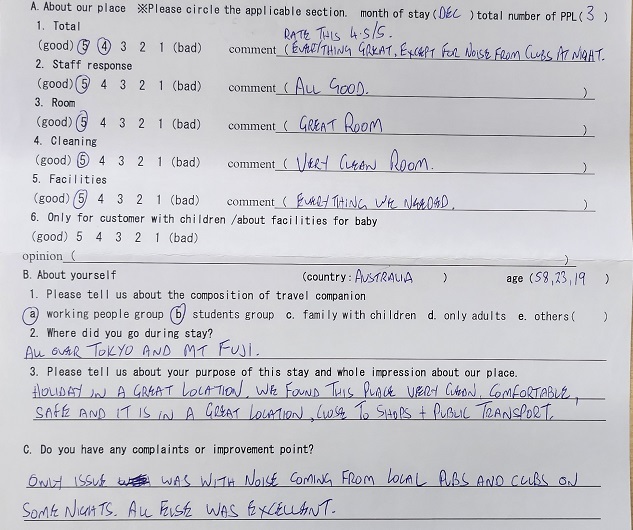 A. About our place ※Please circle the applicable section. month of stay (DEC ) total number of PPL( 3 )
1. Total
RATE THIS 4.5/5.
(good) 5 4 3 2 1 (bad) comment ( EVERYTHING GREAT, EXCEPT FOR NOISE FROM CLUBS AT NIGHT.
2. Staff response
(good) 5 4 3 2 1 (bad) comment ( ALL GOOD. )
3. Room
(good) 5 4 3 2 1 (bad) comment ( GREAT ROOM )
4. Cleaning
(good) 5 4 3 2 1 (bad) comment ( VERY CLEAN ROOM. )
5. Facilities
(good) 5 4 3 2 1 (bad) comment ( EVERYTHING WE NEEDED. )
6. Only for customer with children /about facilities for baby
(good) 5 4 3 2 1 (bad)
opinion ( )
B. About yourself (country: AUSTRALIA ) age (58,23,19 )
1. Please tell us about the composition of travel companion
a) working people group b) students group c. family with children d. only adults e. others( )
2. Where did you go during stay?
ALL OVER TOKYO AND MT FUJI.
3. Please tell us about your purpose of this stay and whole impression about our place.
HOLIDAY IN A GREAT LOCATION. WE FOUND THIS PLACE VERY CLEAN, COMFORTABLE,
SAFE AND IT IS IN A GREAT LOCATION, CLOSE TO SHOPS + PUBLIC TRANSPORT.
C. Do you have any complaints or improvement point?
ONLY ISSUE WAS WITH NOISE COMING FROM LOCAL PUBS AND CLUBS ON
SOME NIGHTS. ALL ELSE WAS EXCELLENT.